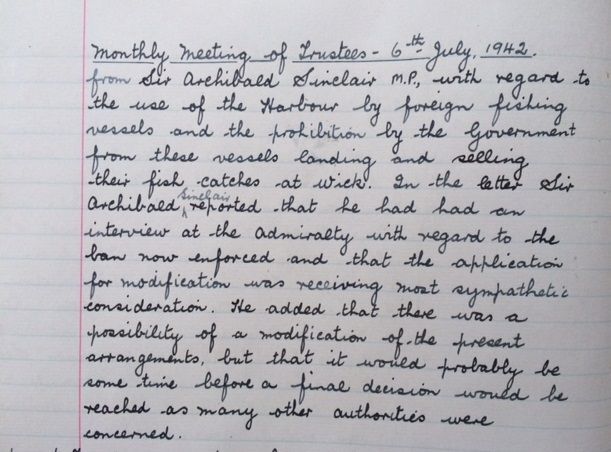 Monthly Meeting of Trustees - 6th July, 1942.
from Sir Archibald Sinclair M.P., with regard to
the use of the Harbour by foreign fishing
vessels and the prohibition by the Government
from these vessels landing and selling
their fish catches at Wick. In the letter Sir
Archibald Sinclair reported that he had had an
interview at the Admiralty with regard to the
ban now enforced and that the application
for modification was receiving most sympathetic
consideration. He added that there was a
possibility of a modification of the present
arrangements, but that it would probably be
some time before a final decision would be
reached as many other authorities were
concerned.